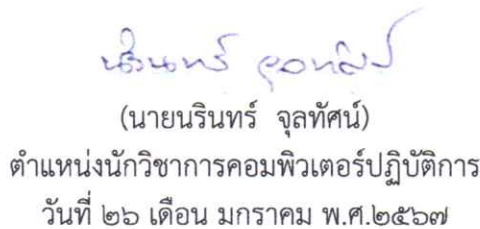 นรินทร์ จุลทัศน์
(นายนรินทร์ จุลทัศน์)
ตำแหน่งนักวิชาการคอมพิวเตอร์ปฏิบัติการ
วันที่ ๒๖ เดือน มกราคม พ.ศ.๒๕๖๗